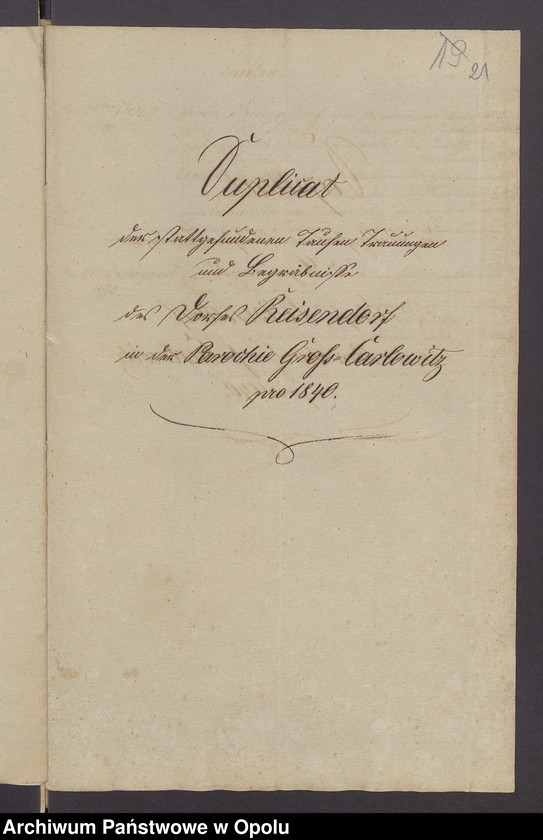 19 21
Duplicat
der stattgefundenen Taufen Trauungen
und Begräbnisse
des Dorfes Reisendorf
in der Parochie Groß-Carlowitz
pro 1840.
Archiwum Państwowe w Opolu